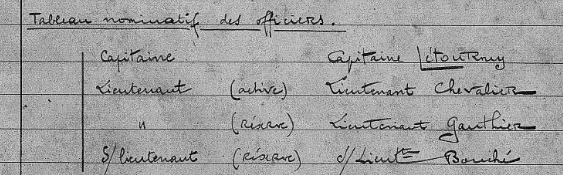 Tableau nominatif des officiers.
Capitaine Capitaine Létourney
Lieutenant (active) Lieutenant Chevalier
" (réserve) Lieutenant Gauthier
S/lieutenant (réserve) S/Lieutt Bouché